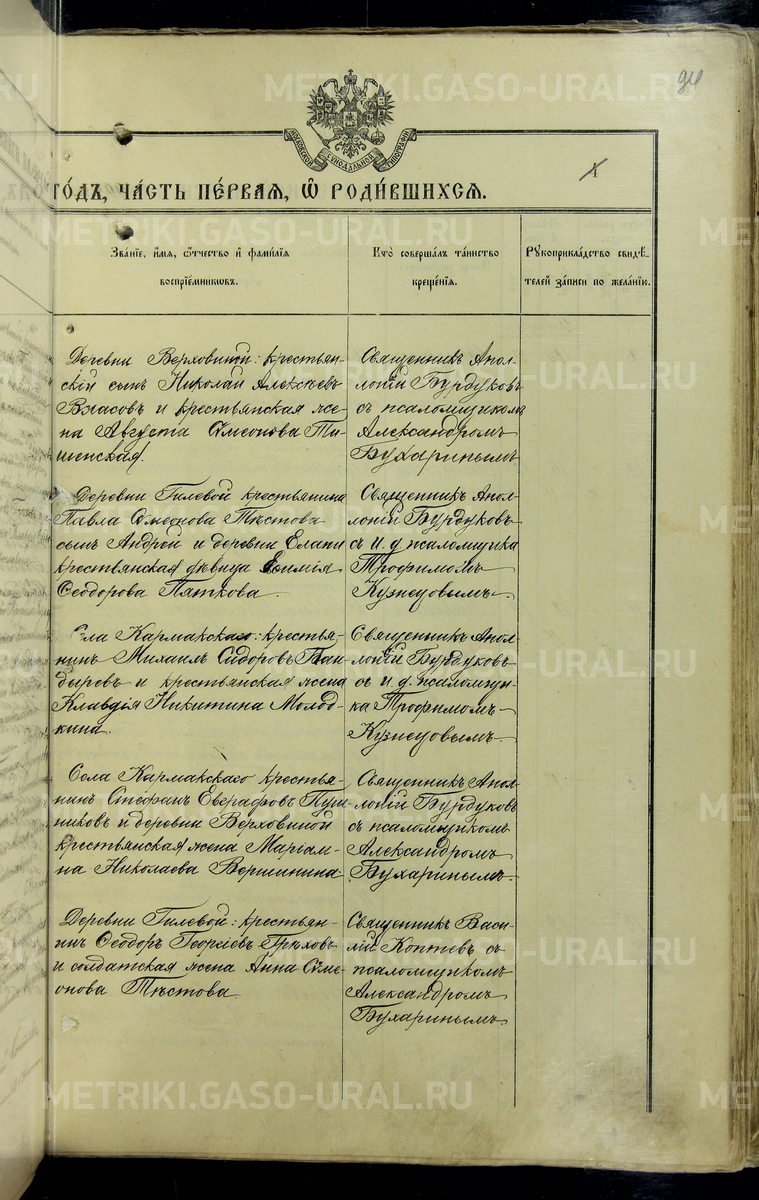 94
МОСКОВСКОЙ СѴНОДАЛЬНОЙ ТИПОГРАФІИ
X
ГО́ДЪ, ЧА́СТЬ ПЕ́РВАЯ, Ѡ҆ РОДИ́ВШИХСЯ.
Зва́ніе, и҆́мя, ѻ҆́тчество и҆ фами́лія
воспріе́мниковъ.
Кто̀ соверша́лъ та́инство
креще́нія.
Рꙋкоприкла́дство свидѣ́-
телей за́писи по жела́нію.
Деревни Верховиной: крестьян-
скій сынъ Николай Алексѣевъ
Власовъ и крестьянская же-
на Августа Сѵмеонова Ти-
шенская.
Священникъ Апол-
лоній Бурдуковъ
съ псаломщикомъ
Александромъ
Бухаринымъ
Деревни Гилевой крестьянина
Павла Сѵмеонова Тѣстова
сынъ Андрей и деревни Елани
крестьянская дѣвица Евѳимія
Ѳеодорова Пяткова.
Священникъ Апол-
лоній Бурдуковъ
съ и. д. псаломщика
Трофимомъ
Кузнецовымъ.
Села Кармакскаго: крестья-
нинъ Михаилъ Сидоровъ Бан-
дыревъ и крестьянская жена
Клавдія Никитина Молод-
кина.
Священникъ Апол-
лоній Бурдуковъ
съ и. д. псаломщи-
ка Трофимомъ
Кузнецовымъ.
Села Кармакскаго крестья-
нинъ Стефанъ Евграфовъ Пуш-
никовъ и деревни Верховиной
крестьянская жена Маріам-
на Николаева Вершинина.
Священникъ Апол-
лоній Бурдуковъ
съ псаломщикомъ
Александромъ
Бухаринымъ.
Деревни Гилевой: крестьян-
инъ Ѳеодоръ Георгіевъ Грѣховъ
и солдатская жена Анна Сѵме-
онова Тѣстова.
Священникъ Васи-
лій Коптевъ съ
псаломщикомъ
Александромъ
Бухаринымъ.
METRIKI.GASO-URAL.RU